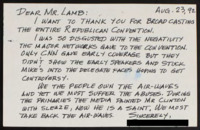 Dear Mr Lamb: Aug. 23, 92
I want to thank you for broadcasting
the entire Republican Convention.
I was so disgusted with the negativity
the major networks gave to the convention.
Only CNN gave early coverage but they
didn't show the early speakers and stuck
mike's into the delegate faces hoping to get
controversy.
We the people own the air-waves
and yet we must suffer the abuses. During
the primaries the media tainted Mr Clinton
with sleaze, now he is a saint, we must
take back the air waves. Sincerely,